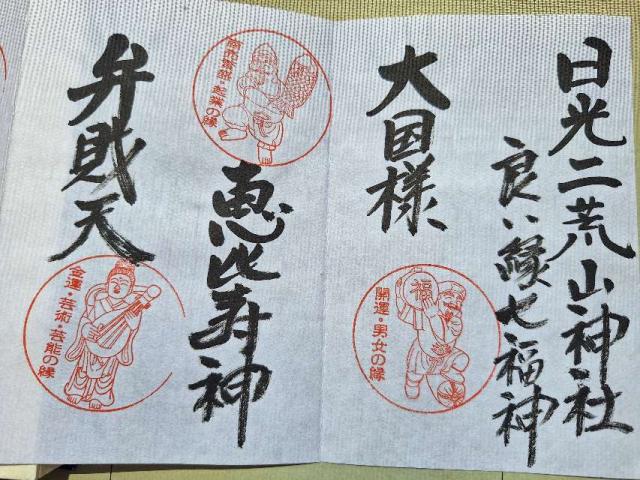 日光二荒山神社
良い縁七福神
大国様
開運・男女の縁
福
商売繁盛・起業の縁
恵比寿神
弁財天
金運・芸術・芸能の縁